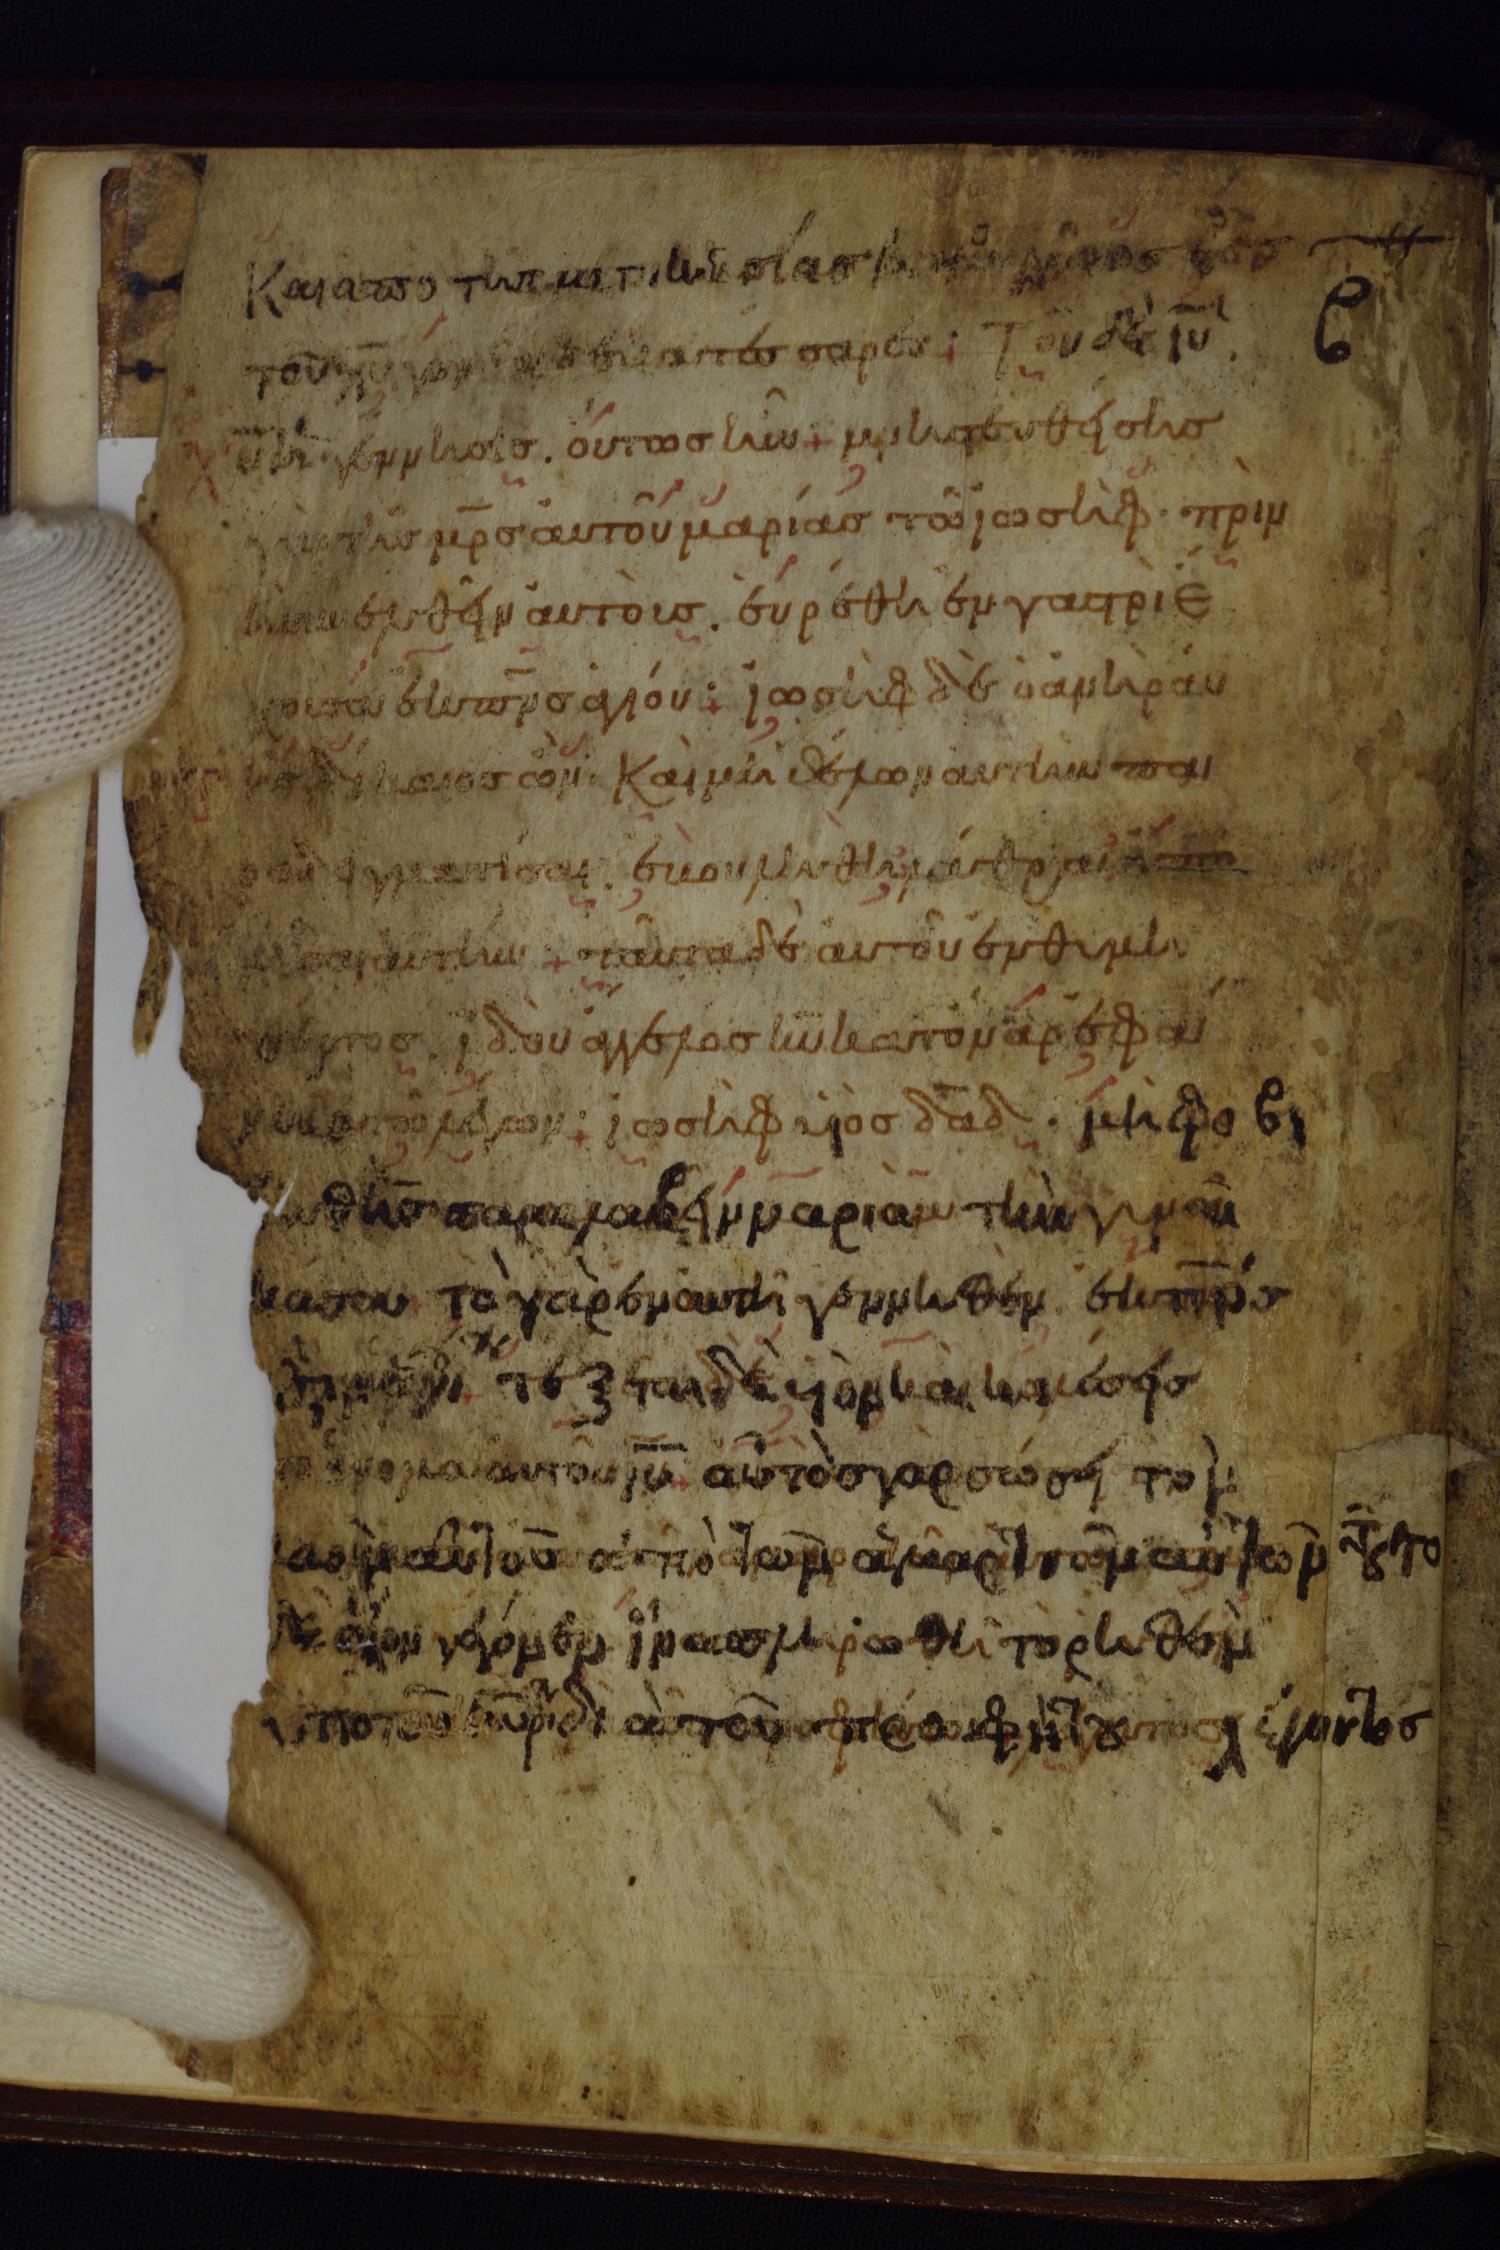 Και απο της μετοικεσίας βαβυλῶνος ἕως
τοῦ χ̅υ̅ γενεαὶ δεκατέσσαρες: Τοῦ δὲ ι̅υ̅
χ̅υ̅ ἡ γέννησις. ὁύτως ἦν + μνηστευθείσης
γὰρ τῆς μ̅ρ̅ς ἀυτοῦ μαρίας τῶ ἰωσὴφ · πρὶν
ἢ συνελθεῖν ἀυτοὺς. ἑυρέθη ἐν γαστρὶ ἔ
χουσα ἐκ π̅ν̅ς ἁγίου: ἰωσὴφ δὲ ὁ ἀνὴρ ἀυ
τῆς δίκαιος ὢν. Καὶ μὴ θέλων ἀυτὴν πα
ραδειγματίσαι. ἐβουλήθη λάθρα ἀπο
λῦσαι ἀυτήν + ταῦτα δὲ ἀυτοῦ ἐνθυμη
θέντος. ἰδοὺ ἄγγελος κ̅υ̅ κατ ὄναρ ἐφάν
η ἀυτῶ λέγων: ἰωσὴφ υἱὸς δ̅α̅δ̅. μὴ φοβη
θῆς παραλαβεῖν μαριὰμ τὴν γυναῖ
κα σου τὸ γὰρ ἐν ἀυτῆ γεννηθὲν ἐκ π̅ν̅ς
ἐστιν ἁγίου + τέξεται δὲ υἱὸν καὶ καλέσεις
τὸ ὄνομα ἀυτοῦ ι̅ν̅ + ἀυτὸς γὰρ σώσει τὸν
λαὸν ἀυτοῦ ἀπὸ τῶν ἁμαρτιῶν ἀυτῶν τοῦτο
δὲ ὅλον γέγονεν ἵνα πληρωθῆ τὸ ρηθὲν
ὑπὸ τοῦ κ̅υ̅ διὰ τοῦ προφήτου λέγοντος